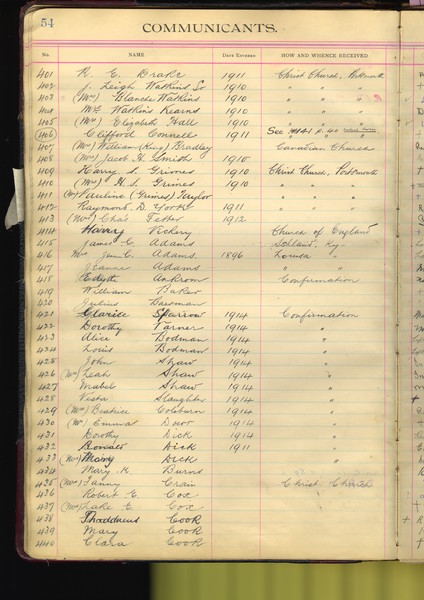 54
COMMUNICANTS.
No. NAME DATE ENTERED HOW AND WHENCE RECEIVED
401 R. E. Drake 1911 Christ Church, Portsmouth
402 J. Leigh Watkins Sr 1910 " " "
403 (Mrs) Blanche Watkins 1910 " " "
404 Watkins Kearns 1910 " " "
405 (Mrs) Elizabeth Hall 1910 " " "
406 Clifford Connell 1911 See p. 40
407 (Mrs) William (King) Bradley Canadian Church
408 (Mrs) Jacob H. Smith 1910 " "
409 Harry S. Grimes 1910 Christ Church, Portsmouth
410 (Mrs) H. S. Grimes 1910 " " "
411 (Mrs) Pauline (Grimes) Taylor " " "
412 Raymond D. York 1911
413 (Mrs) Chas Fetter 1912
414 Harry Vickery Church of England
415 James C. Adams Ashland, Ky.
416 Mrs Adams. 1896 Louisa
417 Adams " "
418 Edyth Ankrom Confirmation
419 William Baker "
420 Julius Bauman "
421 Clarice Sparrow 1914 Confirmation
422 Dorothy Varner 1914 "
423 Alice Bodman 1914 "
424 Lois Bodman 1914 "
425 John Shaw 1914 "
426 (Mrs) Leah Shaw 1914 "
427 Mabel Shaw 1914 "
428 Vesta Slaughter 1914 "
429 (Mrs) Beatrice Coleburn 1914 "
430 (Mrs) Emma 1914 "
431 Dorothy Dick 1914 "
432 Donald Dick 1911 "
433 (Mrs) Mary Dick "
434 Mary K. Burns
435 (Mrs) Fanny Crain Christ Church
436 Robert E. Coe
437 (Mrs) Coe
438 Thaddeus Cook
439 Mary Cook
440 Clara Cook